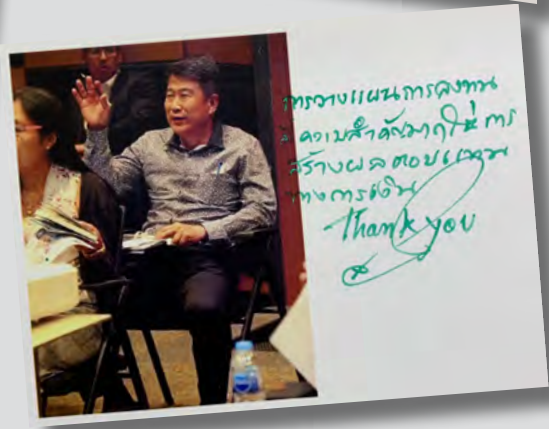 การวางแผนการลงทุน
ความสำคัญมาก การ
สร้างผลตอบแทน
ทางการเงิน
Thank you